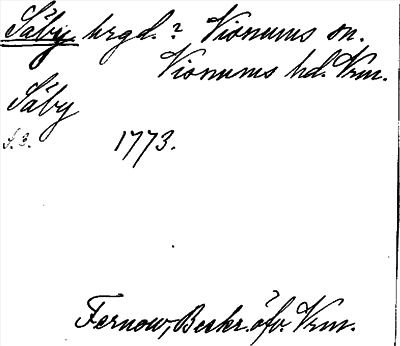 Säby hrgd.? Visnums sn.
Visnums hd. Vrm.
Säby
S. 3. 1773.
Fernow, Beskr. öfv. Vrm.